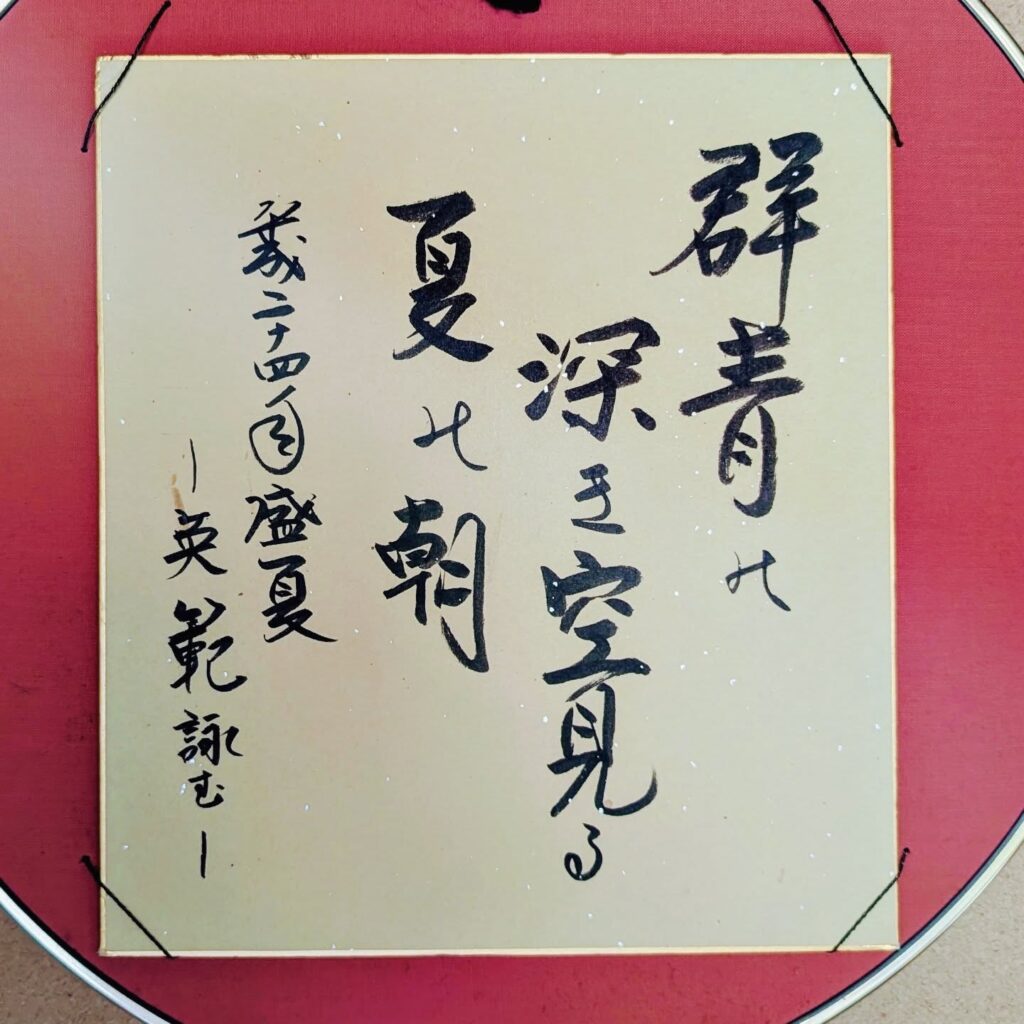 群青の
深き空見る
夏の朝
平成二十四年盛夏
ー英範詠むー